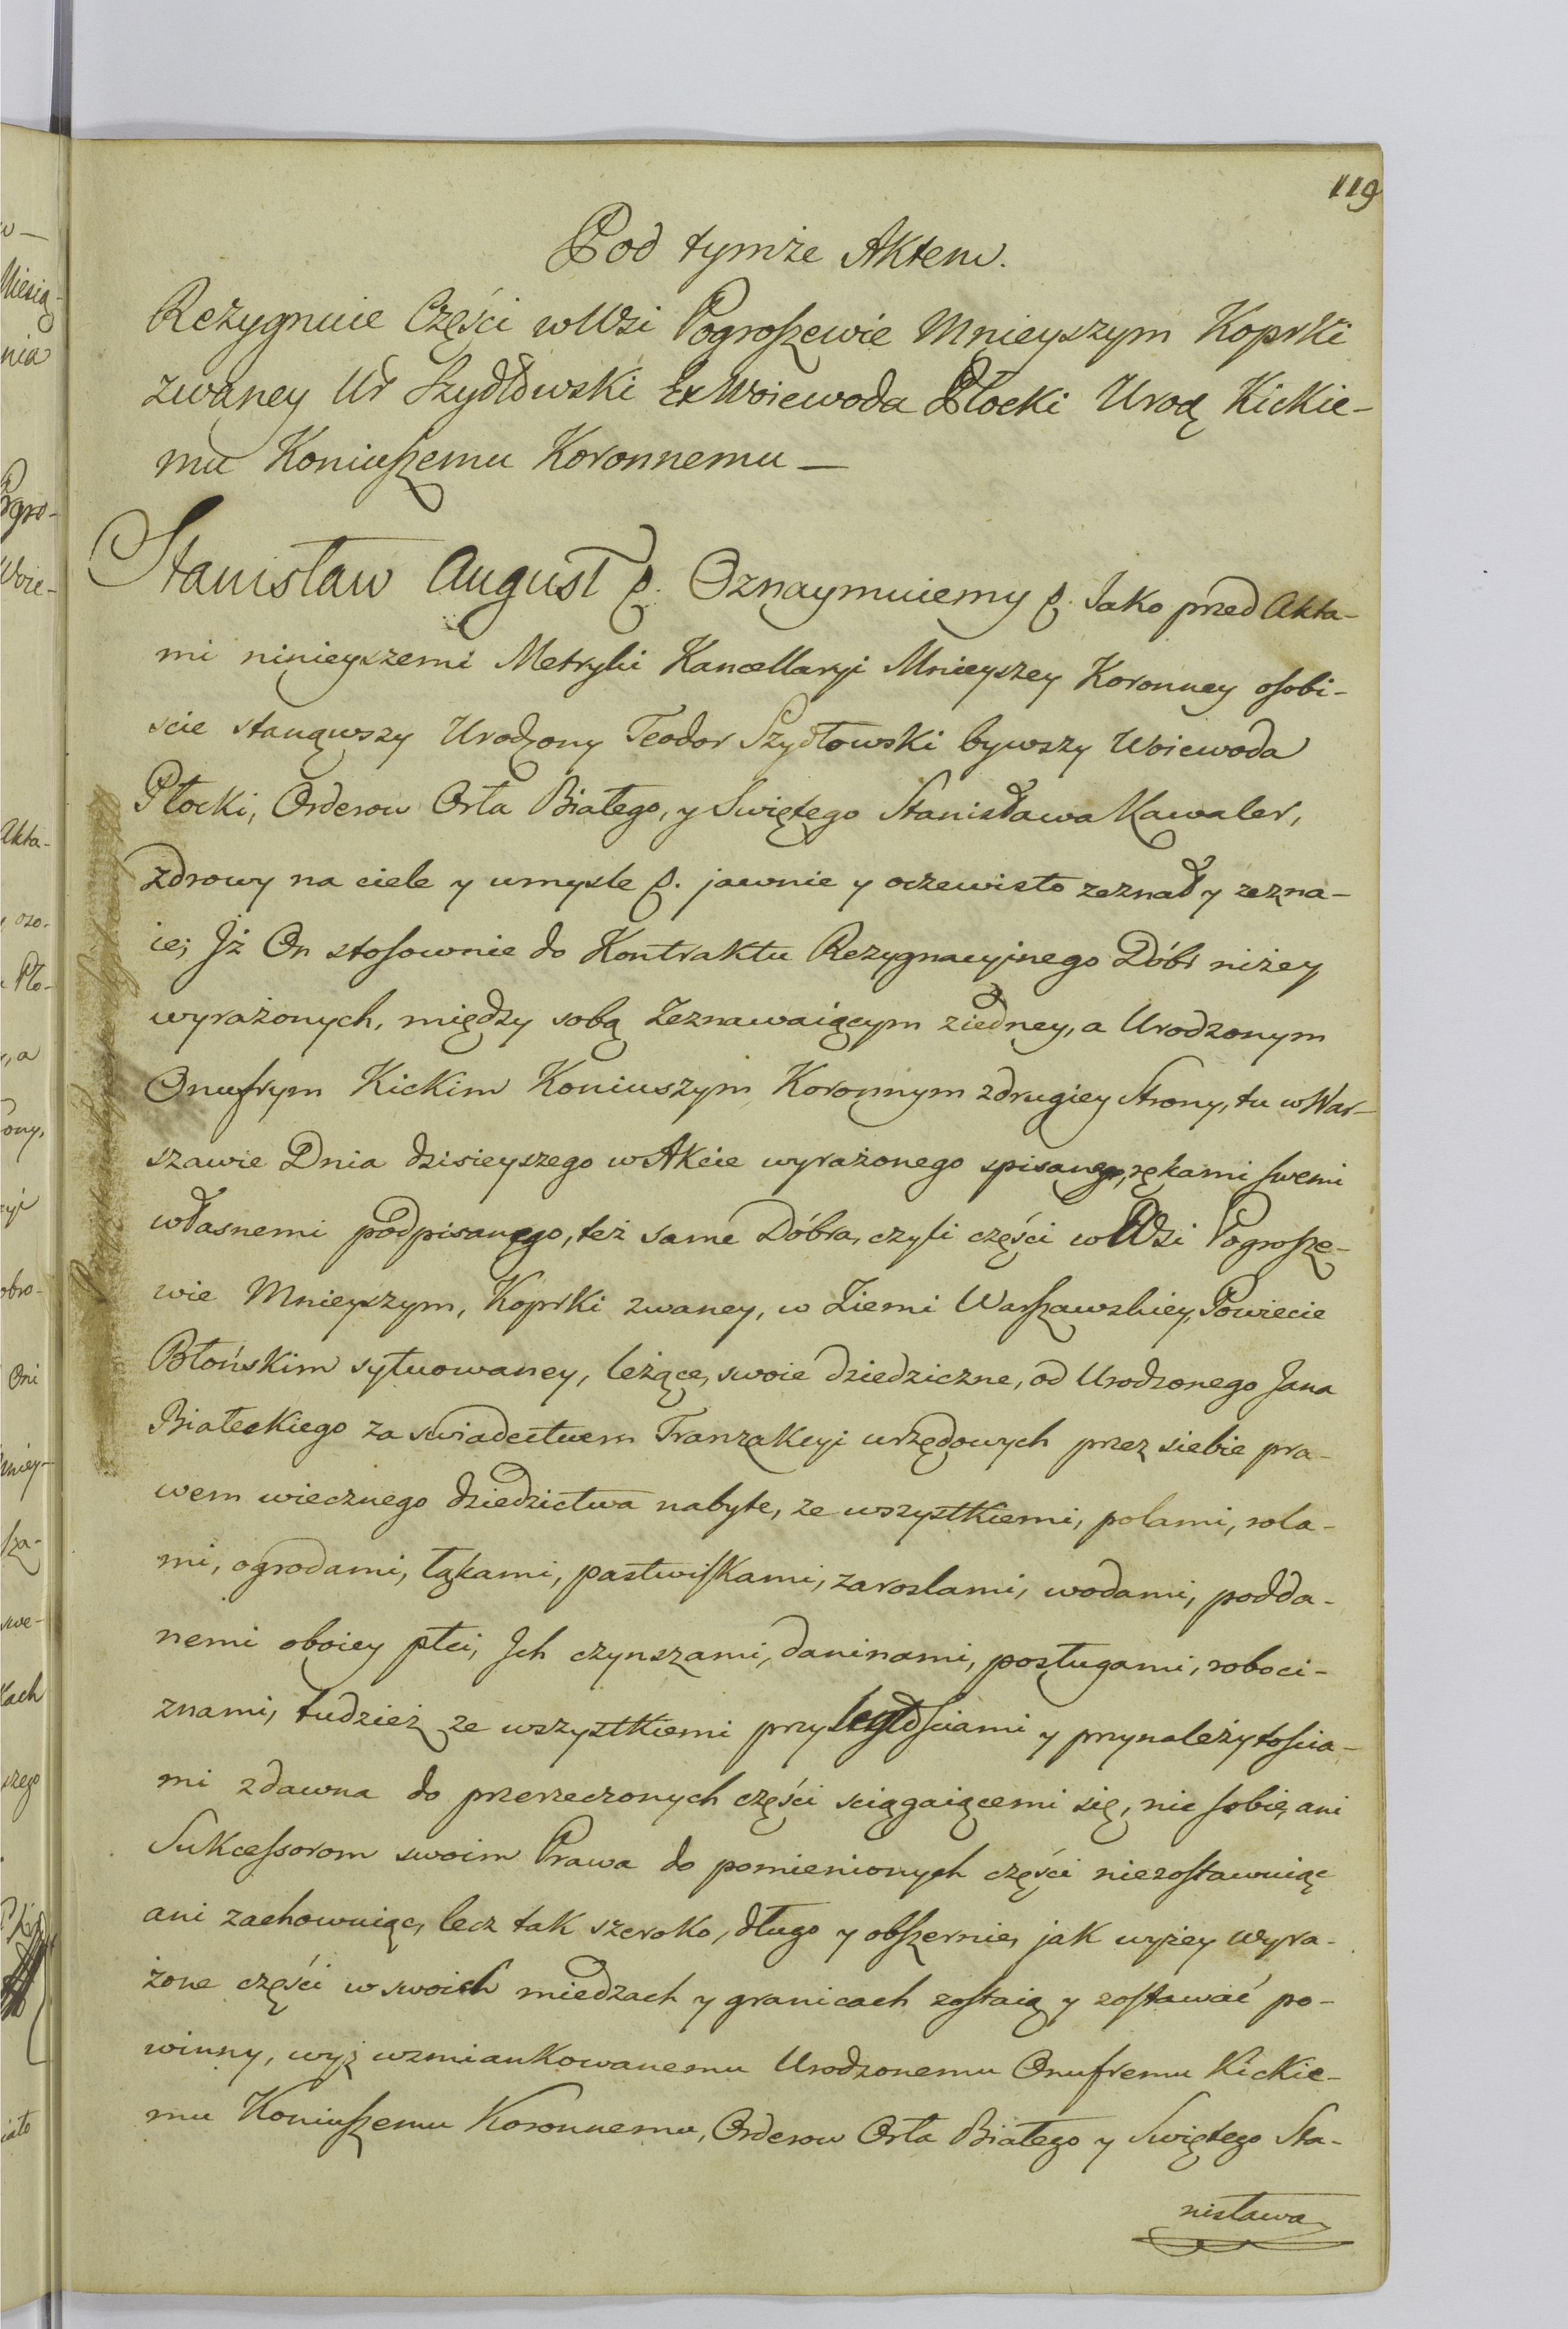 119
Pod tymże Aktem.
Rezygnuie Części w Wsi Pogroszewie Mnieyszym Koprki
zwaney Ur Szydłowski Ex Woiewoda Płocki Urodz Kickie-
mu Koniuszemu Koronnemu —
Stanisław August p. Oznaymuiemy p. Jako przed Akta-
mi ninieyszemi Metryki Kancellaryi Mnieyszey Koronney osobi-
scie stanąwszy Urodzony Teodor Szydłowski bywszy Woiewoda
Płocki, Orderow Orła Białego, y Swiętego Stanisława Kawaler,
zdrowy na ciele y umyśle p. jawnie y oczewisto zeznał y zezna-
ie; Jż On stosownie do Kontraktu Rezygnacyjnego Dóbr niżey
wyrażonych, między sobą Zeznawaiącym z iedney, a Urodzonym
Onufrym Kickim Koniuszym Koronnym z drugiey Strony, tu w War-
szawie Dnia dzisieyszego w Akcie wyrażonego spisanego, rękami swemi
własnemi podpisanego, też same Dóbra, czyli części w Wsi Pogrosze-
wie Mnieyszym, Koprki zwaney, w Ziemi Warszawskiey, Powiecie
Błońskim sytuowaney, leżące, swoie dziedziczne, od Urodzonego Jana
Białeckiego za swiadectwem Tranzakcyi urzędowych przez siebie pra-
wem wiecznego dziedzictwa nabyte, ze wszystkiemi, polami, rola-
mi, ogrodami, łąkami, pastwiskami, zaroslami, wodami, podda-
nemi oboiey płci, Jch czynszami, daninami, posługami, roboci-
znami, tudzież ze wszystkiemi przyległościami y przynależytościa-
mi zdawna do przerzeczonych części sciągaiącemi się, nic sobie, ani
Sukcessorom swoim Prawa do pomienionych części niezostawuiąc
ani zachowuiąc, lecz tak szeroko, długo y obszernie, jak wyżey wyra-
żone części w swoich miedzach y granicach zostaią y zostawać po-
winny, wyż wzmiankowanemu Urodzonemu Onufremu Kickie-
mu Koniuszemu Koronnemu, Orderow Orła Białego y Swiętego Sta-
nisława